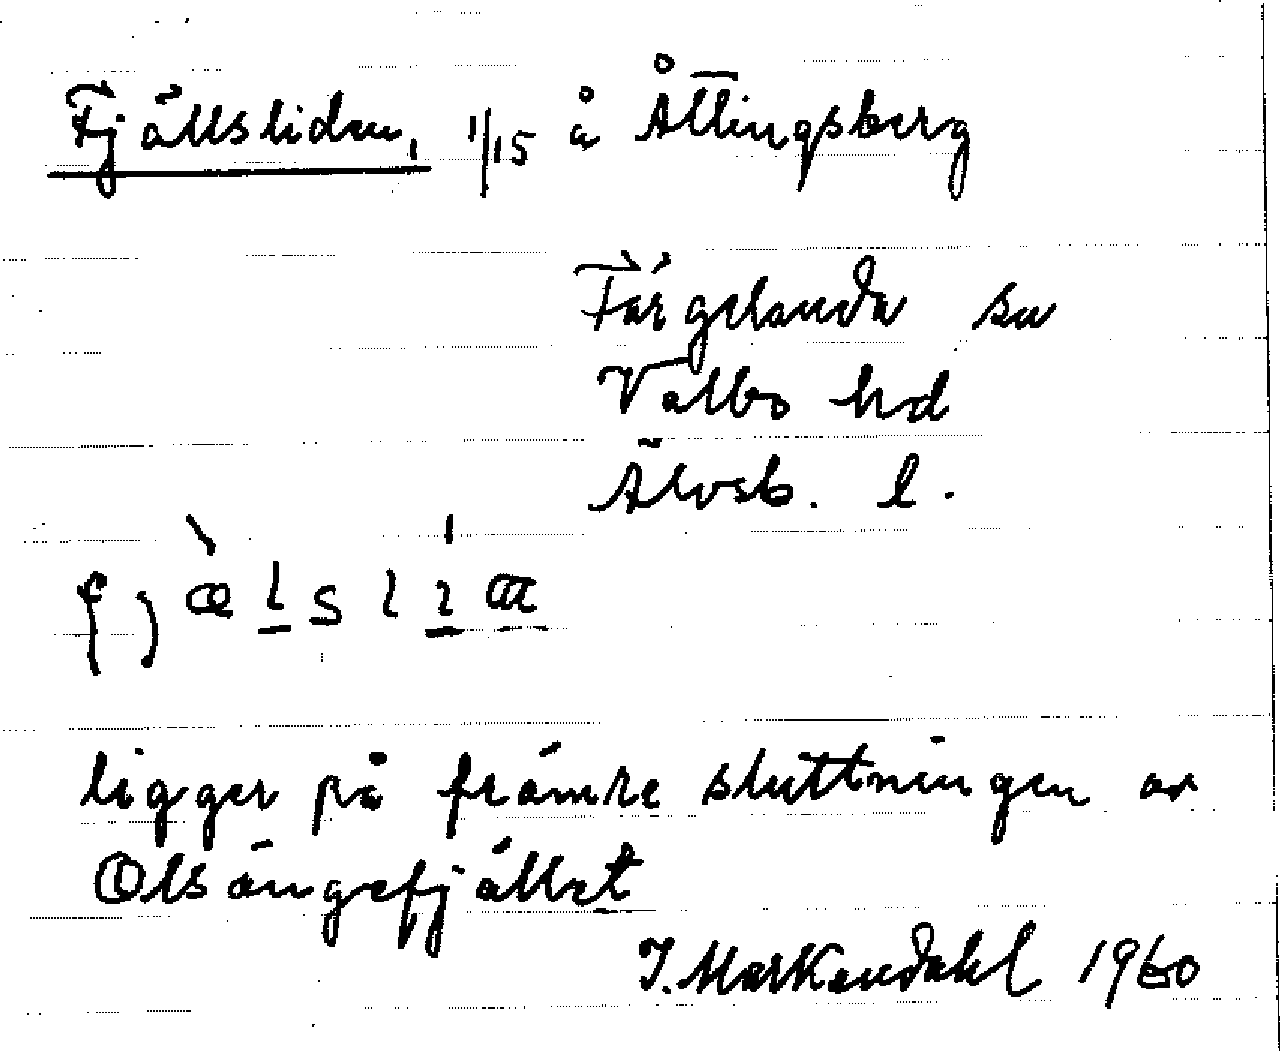 Fjällsliden, 1/15 å Ållingsberg
Färgelanda sn
Valbo hd
Älvsb. l.
ligger på främre sluttningen av
Olsängefjället
J. Markendahl 1960